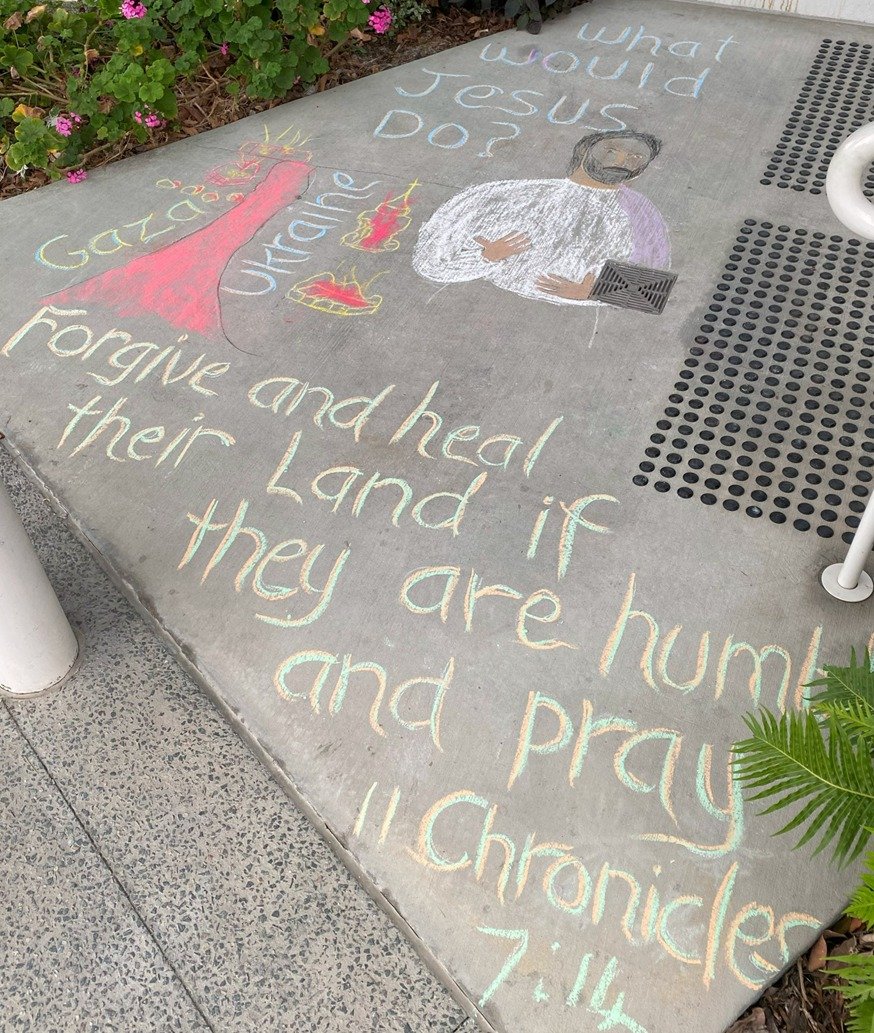 What
would
Jesus
Do?
Gaza
Ukraine
Forgive and heal
their Land if
they are humb
and pray
II Chronicles
7:14